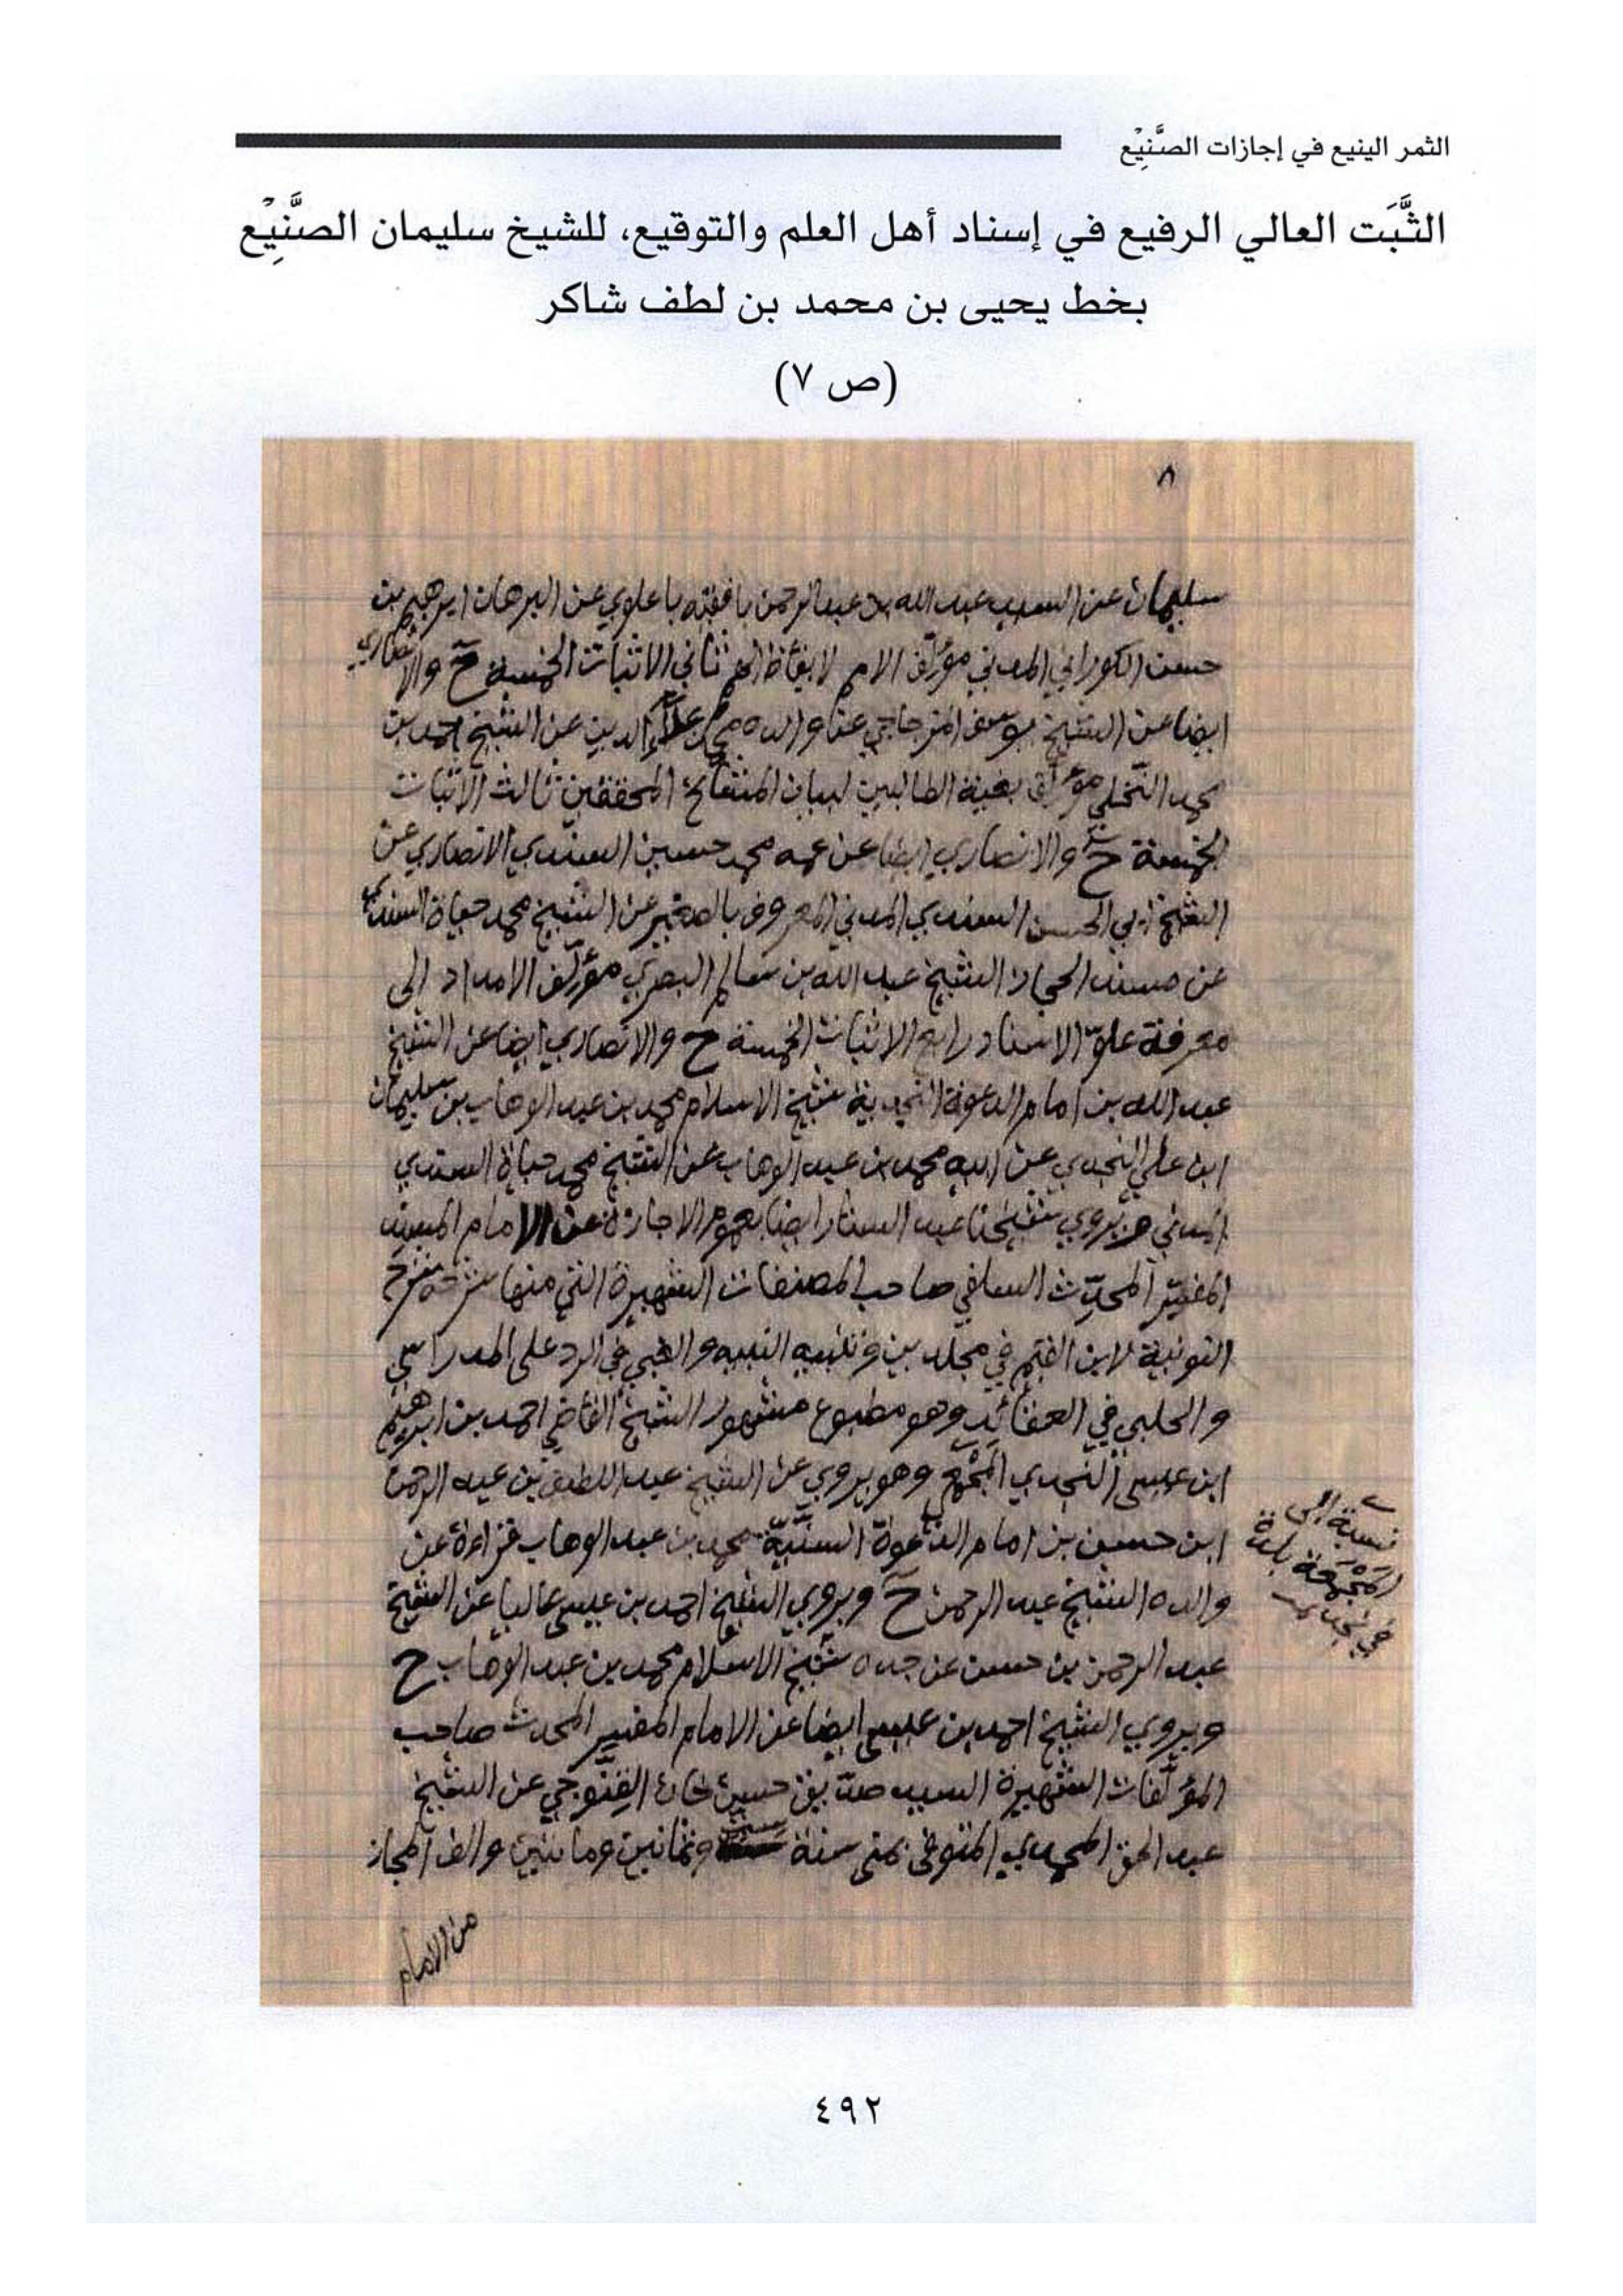 الثمر الينيع في إجازات الصَّنِيْع
الثَّبَت العالي الرفيع في إسناد أهل العلم والتوقيع، للشيخ سليمان الصَّنِيْع
بخط يحيى بن محمد بن لطف شاكر
(ص ٧)
٨
سليمان عن السيد عبد الله بن عبد الرحمن بافقيه باعلوي عن البرهان ابرهيم بن
حسن الكوراني المدني مؤلف الامم لايقاظ الهمم ثاني الاثبات الخمسة ح والانصاري
ايضا عن الشيخ يوسف المزجاجي عن والده محمد علاء الدين عن الشيخ احمد بن
محمد النخلي مؤلف بغية الطالبين لبيان المشائخ المحققين ثالث الاثبات
الخمسة ح والانصاري ايضا عن عمه محمد حسين السندي الانصاري عن
الشيخ ابي الحسن السندي المدني المعروف بالصغير عن الشيخ محمد حياة السندي
عن مسند الحجاز الشيخ عبد الله بن سالم البصري مؤلف الامداد إلى
معرفة علوّ الاسناد رابع الاثبات الخمسة ح والانصاري ايضا عن الشيخ
عبد الله بن امام الدعوة النجدية شيخ الاسلام محمد بن عبد الوهاب بن سليمان
ابن علي النجدي عن ابيه محمد بن عبد الوهاب عن الشيخ محمد حياة السندي
المدني ح ويروي شيخنا عبد الستار ايضا بعموم الاجازة عن الامام المسند
المفسّر المحدّث السلفي صاحب المصنفات الشهيرة التي منها شرحه شرح
النونية لابن القيم في مجلدين وتنبيه النبيه والغبي في الرد على المدراسي
والحلبي في العقائد وهو مطبوع مشهور الشيخ القاضي احمد بن ابرهيم
ابن عيسى النجدي المَجْمَعي وهو يروي عن الشيخ عبد اللطيف بن عبد الرحمن
ابن حسين بن امام الدعوة السنيّة محمد بن عبد الوهاب قراءة عن
والده الشيخ عبد الرحمن ح ويروي الشيخ احمد بن عيسى عاليا عن الشيخ
عبد الرحمن بن حسن عن جده شيخ الاسلام محمد بن عبد الوهاب ح
ويروي الشيخ احمد بن عيسى ايضا عن الامام المفسر المحدث صاحب
المؤلّفات الشهيرة السيد صدّيق حسن خان القِنّوجي عن الشيخ
عبد الحق المحمدي المتوفى بمنى سنة ست وثمانين ومائتين والف المجاز
من الامام
نسبة إلى
المَجْمَعة بلدة
في نجد
٤٩٢